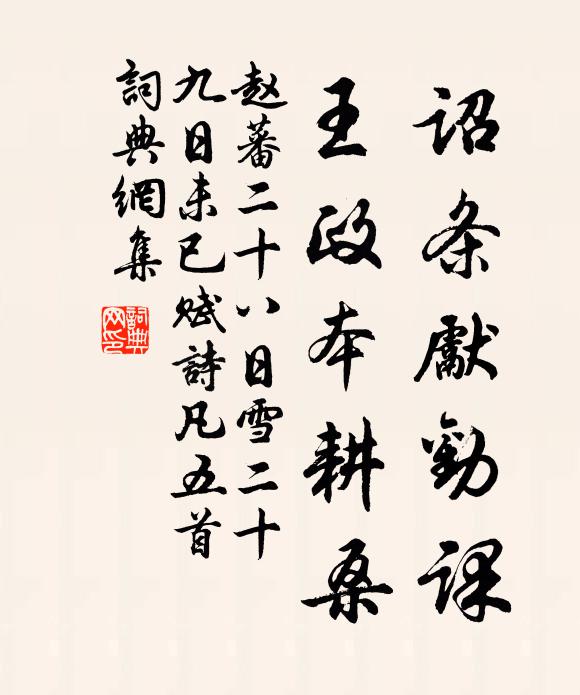 诏条献勤课
王政本耕桑
赵蕃二十八日雪二十
九日未已赋詩凡五首
詞典網集
詞典网印